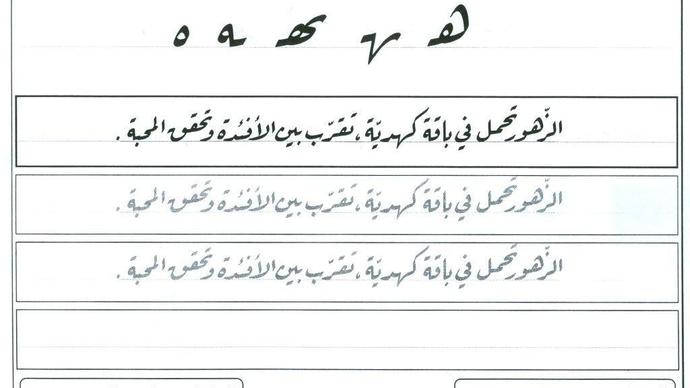 هـ ـهـ ـهـ ـه ه
الزّهور تحمل في باقة كهديّة، تقرّب بين الأفئدة وتحقق المحبة.
الزّهور تحمل في باقة كهديّة، تقرّب بين الأفئدة وتحقق المحبة.
الزّهور تحمل في باقة كهديّة، تقرّب بين الأفئدة وتحقق المحبة.